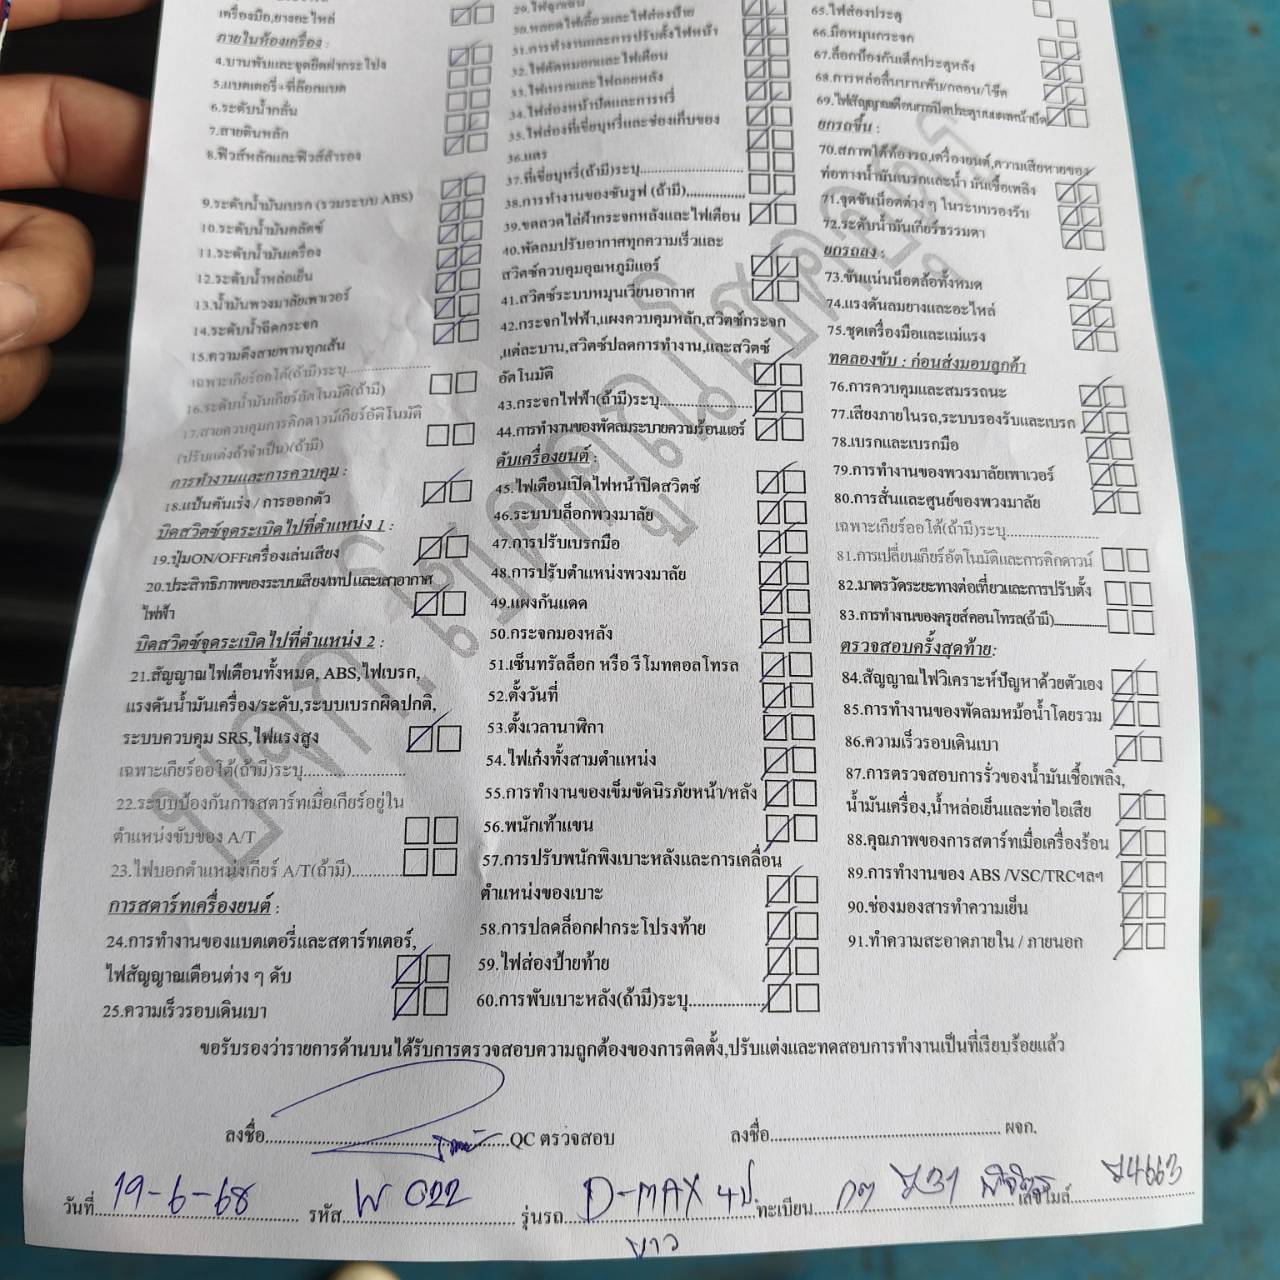 เครื่องมือ,ยางอะไหล่
ภายในห้องเครื่อง :
4.บานพับและชุดยึดฝากระโปรง
5.แบตเตอรี่+ที่ล๊อกแบต
6.ระดับน้ำกลั่น
7.สายดินหลัก
8.ฟิวส์หลักและฟิวส์สำรอง
9.ระดับน้ำมันเบรก (รวมระบบ ABS)
10.ระดับน้ำมันคลัตช์
11.ระดับน้ำมันเครื่อง
12.ระดับน้ำหล่อเย็น
13.น้ำมันพวงมาลัยเพาเวอร์
14.ระดับน้ำฉีดกระจก
15.ความตึงสายพานทุกเส้น
เฉพาะเกียร์ออโต้(ถ้ามี)ระบุ....................
16.ระดับน้ำมันเกียร์อัตโนมัติ(ถ้ามี)
17.สายควบคุมการคิกดาวน์เกียร์อัติโนมัติ
(ปรับแต่งถ้าจำเป็น)(ถ้ามี)
การทำงานและการควบคุม :
18.แป้นคันเร่ง / การออกตัว
บิดสวิตซ์จุดระเบิดไปที่ตำแหน่ง 1 :
19.ปุ่มON/OFFเครื่องเล่นเสียง
20.ประสิทธิภาพของระบบเสียงเทป และเสาอากาศ
ไฟฟ้า
บิดสวิตซ์จุดระเบิดไปที่ตำแหน่ง 2 :
21.สัญญาณไฟเตือนทั้งหมด, ABS,ไฟเบรก,
แรงดันน้ำมันเครื่อง/ระดับ,ระบบเบรกผิดปกติ,
ระบบควบคุม SRS,ไฟแรงสูง
เฉพาะเกียร์ออโต้(ถ้ามี)ระบุ....................
22.ระบบป้องกันการสตาร์ทเมื่อเกียร์อยู่ใน
ตำแหน่งขับของ A/T
23.ไฟบอกตำแหน่งเกียร์ A/T(ถ้ามี)..........
การสตาร์ทเครื่องยนต์ :
24.การทำงานของแบตเตอรี่และสตาร์ทเตอร์,
ไฟสัญญาณเตือนต่าง ๆ ดับ
25.ความเร็วรอบเดินเบา
29.ไฟฉุกเฉิน
30.หลอดไฟเลี้ยวและไฟส่องป้าย
31.การทำงานและการปรับตั้งไฟหน้า
32.ไฟตัดหมอกและไฟเตือน
33.ไฟเบรกและไฟถอยหลัง
34.ไฟส่องหน้าปัดและการหรี่
35.ไฟส่องที่เขี่ยบุหรี่และช่องเก็บของ
36.แตร
37.ที่เขี่ยบุหรี่(ถ้ามี)ระบุ....................
38.การทำงานของซันรูฟ (ถ้ามี)...............
39.ขดลวดไล่ฝ้ากระจกหลังและไฟเตือน
40.พัดลมปรับอากาศทุกความเร็วและ
สวิตซ์ควบคุมอุณหภูมิแอร์
41.สวิตซ์ระบบหมุนเวียนอากาศ
42.กระจกไฟฟ้า,แผงควบคุมหลัก,สวิตซ์กระจก
,แต่ละบาน,สวิตซ์ปลดการทำงาน,และสวิตซ์
อัตโนมัติ
43.กระจกไฟฟ้า(ถ้ามี)ระบุ....................
44.การทำงานของพัดลมระบายความร้อนแอร์
ดับเครื่องยนต์ :
45.ไฟเตือนเปิดไฟหน้าปิดสวิตซ์
46.ระบบบล็อกพวงมาลัย
47.การปรับเบรกมือ
48.การปรับตำแหน่งพวงมาลัย
49.แผงกันแดด
50.กระจกมองหลัง
51.เซ็นทรัลล็อก หรือ รีโมทคอลโทรล
52.ตั้งวันที่
53.ตั้งเวลานาฬิกา
54.ไฟเก๋งทั้งสามตำแหน่ง
55.การทำงานของเข็มขัดนิรภัยหน้า/หลัง
56.พนักเท้าแขน
57.การปรับพนักพิงเบาะหลังและการเคลื่อน
ตำแหน่งของเบาะ
58.การปลดล็อกฝากระโปรงท้าย
59.ไฟส่องป้ายท้าย
60.การพับเบาะหลัง(ถ้ามี)ระบุ...............
65.ไฟส่องประตู
66.มือหมุนกระจก
67.ล็อกป้องกันเด็กประตูหลัง
68.การหล่อลื่นบานพับ/กลอน/โช๊ค
ยกรถขึ้น :
70.สภาพใต้ท้องรถ,เครื่องยนต์,ความเสียหายของ
ท่อทางน้ำมันเบรกและน้ำ มันเชื้อเพลิง
71.จุดขันน็อตต่าง ๆ ในระบบรองรับ
72.ระดับน้ำมันเกียร์ธรรมดา
ยกรถลง :
73.ขันแน่นน็อตล้อทั้งหมด
74.แรงดันลมยางและอะไหล่
75.ชุดเครื่องมือและแม่แรง
ทดลองขับ : ก่อนส่งมอบลูกค้า
76.การควบคุมและสมรรถนะ
77.เสียงภายในรถ,ระบบรองรับและเบรก
78.เบรกและเบรกมือ
79.การทำงานของพวงมาลัยเพาเวอร์
80.การสั่นและศูนย์ของพวงมาลัย
เฉพาะเกียร์ออโต้(ถ้ามี)ระบุ....................
81.การเปลี่ยนเกียร์อัตโนมัติและการคิกดาวน์
82.มาตรวัดระยะทางต่อเที่ยวและการปรับตั้ง
83.การทำงานของครุยส์คอนโทรล(ถ้ามี)...............
ตรวจสอบครั้งสุดท้าย:
84.สัญญาณไฟวิเคราะห์ปัญหาด้วยตัวเอง
85.การทำงานของพัดลมหม้อน้ำโดยรวม
86.ความเร็วรอบเดินเบา
87.การตรวจสอบการรั่วของน้ำมันเชื้อเพลิง,
น้ำมันเครื่อง,น้ำหล่อเย็นและท่อไอเสีย
88.คุณภาพของการสตาร์ทเมื่อเครื่องร้อน
89.การทำงานของ ABS /VSC/TRCฯลฯ
90.ช่องมองสารทำความเย็น
91.ทำความสะอาดภายใน / ภายนอก
ขอรับรองว่ารายการด้านบนได้รับการตรวจสอบความถูกต้องของการติดตั้ง,ปรับแต่งและทดสอบการทำงานเป็นที่เรียบร้อยแล้ว
ลงชื่อ..............................QC ตรวจสอบ ลงชื่อ.............................. ผจก.
วันที่ 19-6-68 รหัส W 022 รุ่นรถ D-MAX 4ป. ทะเบียน เลขไมล์
ขาว